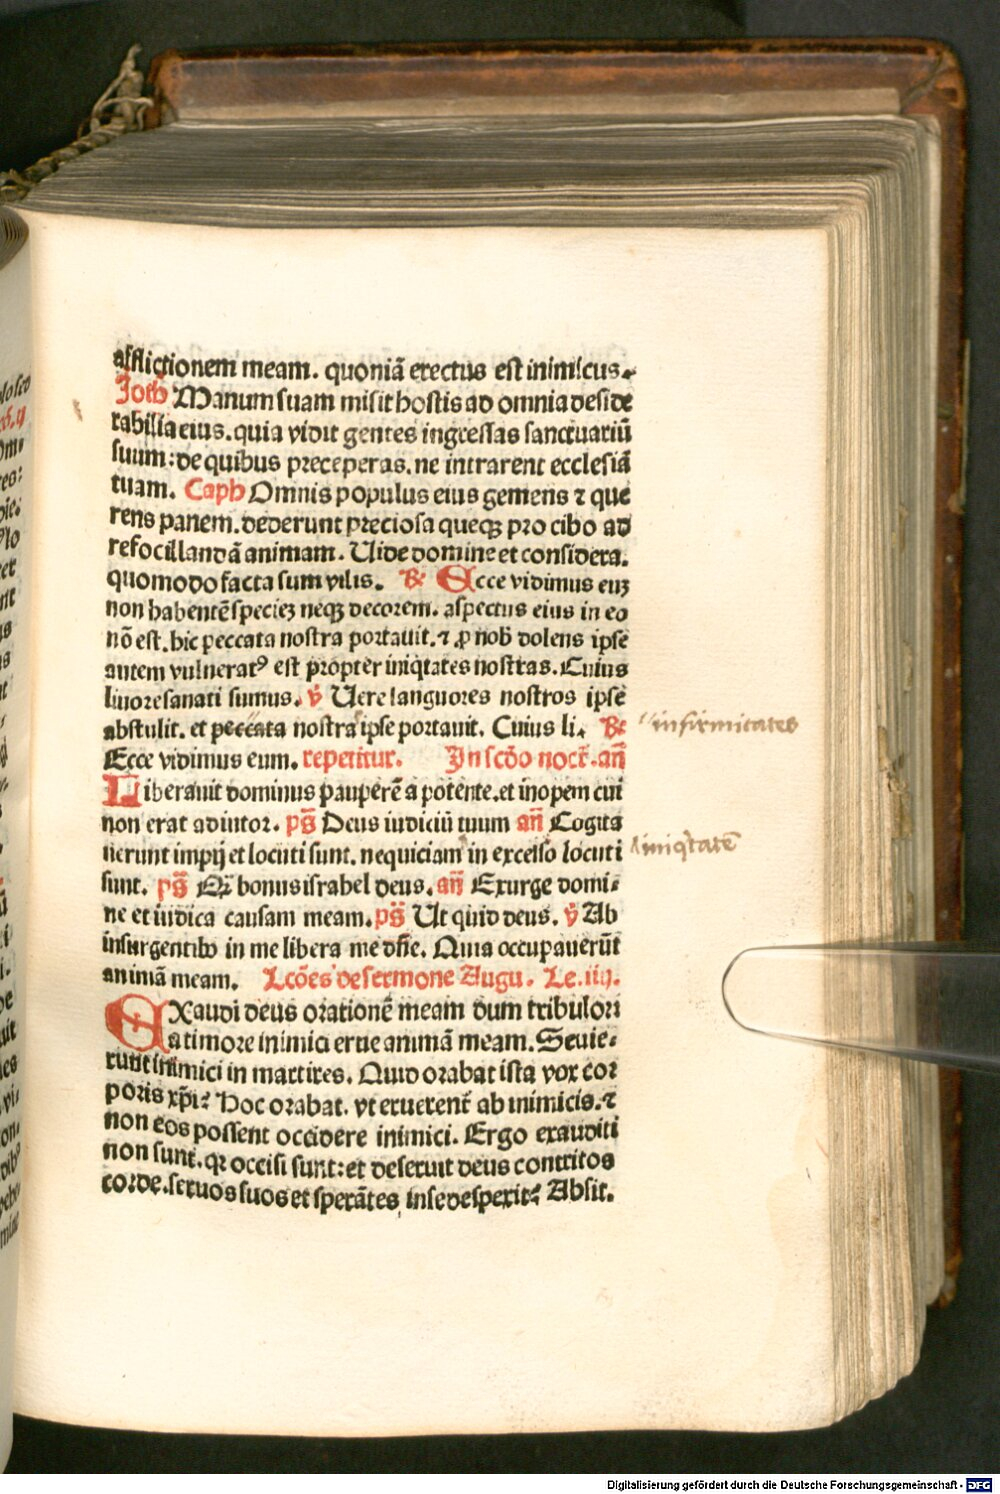 afflictionem meam. quoniã erectus est inimicus.
Joth Manum suam misit hostis ad omnia deside
rabilia eius. quia vidit gentes ingressas sanctuariũ
suum: de quibus preceperas. ne intrarent ecclesiã
tuam. Caph Omnis populus eius gemens ⁊ que
rens panem. dederunt preciosa queqꝫ pro cibo ad
refocillandã animam. Uide domine et considera.
quomodo facta sum vilis. ℟ Ecce vidimus euꝫ
non habentẽ specieꝫ neqꝫ decorem. aspectus eius in eo
nõ est. hic peccata nostra portauit. ⁊ ꝓ nob̃ dolens ipse
autem vulneratꝰ est propter iniq̇tates nostras. Cuius
liuore sanati sumus. ℣ Uere languores nostros ipse
abstulit. et peccata nostra ipse portauit. Cuius li. ℟
infirmitates
Ecce vidimus eum. repetitur. In scd̃o noct̃. añ
Liberauit dominus pauperẽ a potente. et inopem cui
non erat adiutor. ps̃ Deus iudiciũ tuum añ Cogita
uerunt impij et locuti sunt. nequiciam in excelso locuti
iniq̇tatẽ
sunt. ps̃ Q̃ bonus israhel deus. añ Exurge domi⸗
ne et iudica causam meam. ps̃ Ut quid deus. ℣ Ab
insurgentibꝰ in me libera me dñe. Quia occupauerũt
animã meam. Lcões de sermone Augu. Le. iiij.
EXaudi deus orationẽ meam dum tribulor:
a timore inimici erue animã meam. Seuie⸗
runt inimici in martires. Quid orabat ista vox cor
poris xp̃i? Hoc orabat. vt eruerent̃ ab inimicis. ⁊
non eos possent occidere inimici. Ergo exauditi
non sunt. qꝛ occisi sunt: et deseruit deus contritos
corde. seruos suos et sperãtes in se despexit? Absit.
Digitalisierung gefördert durch die Deutsche Forschungsgemeinschaft - DFG